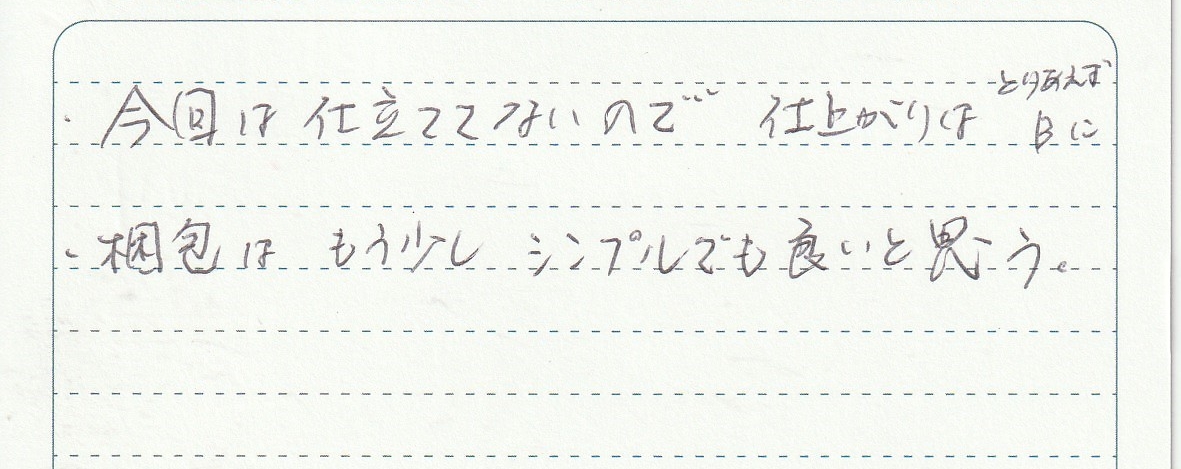 ・今回は仕立ててないので… 仕上がりは とりあえず Bに
・梱包は もう少し シンプルでも良いと思う。